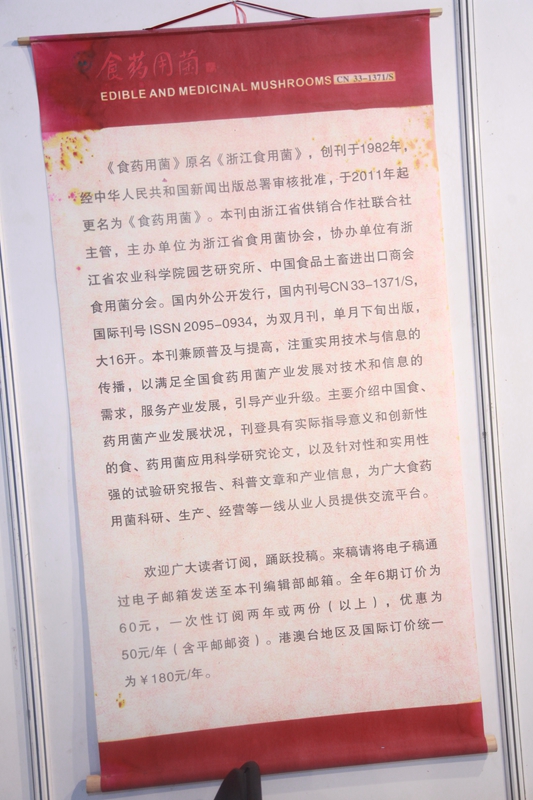 食药用菌
EDIBLE AND MEDICINAL MUSHROOMS CN 33-1371/S
《食药用菌》原名《浙江食用菌》，创刊于1982年，
经中华人民共和国新闻出版总署审核批准，于2011年起
更名为《食药用菌》。本刊由浙江省供销合作社联合社
主管，主办单位为浙江省食用菌协会，协办单位有浙
江省农业科学院园艺研究所、中国食品土畜进出口商会
食用菌分会。国内外公开发行，国内刊号CN 33-1371/S，
国际刊号 ISSN 2095-0934，为双月刊，单月下旬出版，
大16开。本刊兼顾普及与提高，注重实用技术与信息的
传播，以满足全国食药用菌产业发展对技术和信息的
需求，服务产业发展，引导产业升级。主要介绍中国食、
药用菌产业发展状况，刊登具有实际指导意义和创新性
的食、药用菌应用科学研究论文，以及针对性和实用性
强的试验研究报告、科普文章和产业信息，为广大食药
用菌科研、生产、经营等一线从业人员提供交流平台。
欢迎广大读者订阅，踊跃投稿。来稿请将电子稿通
过电子邮箱发送至本刊编辑部邮箱。全年6期订价为
60元，一次性订阅两年或两份（以上），优惠为
50元/年（含平邮邮资）。港澳台地区及国际订价统一
为￥180元/年。